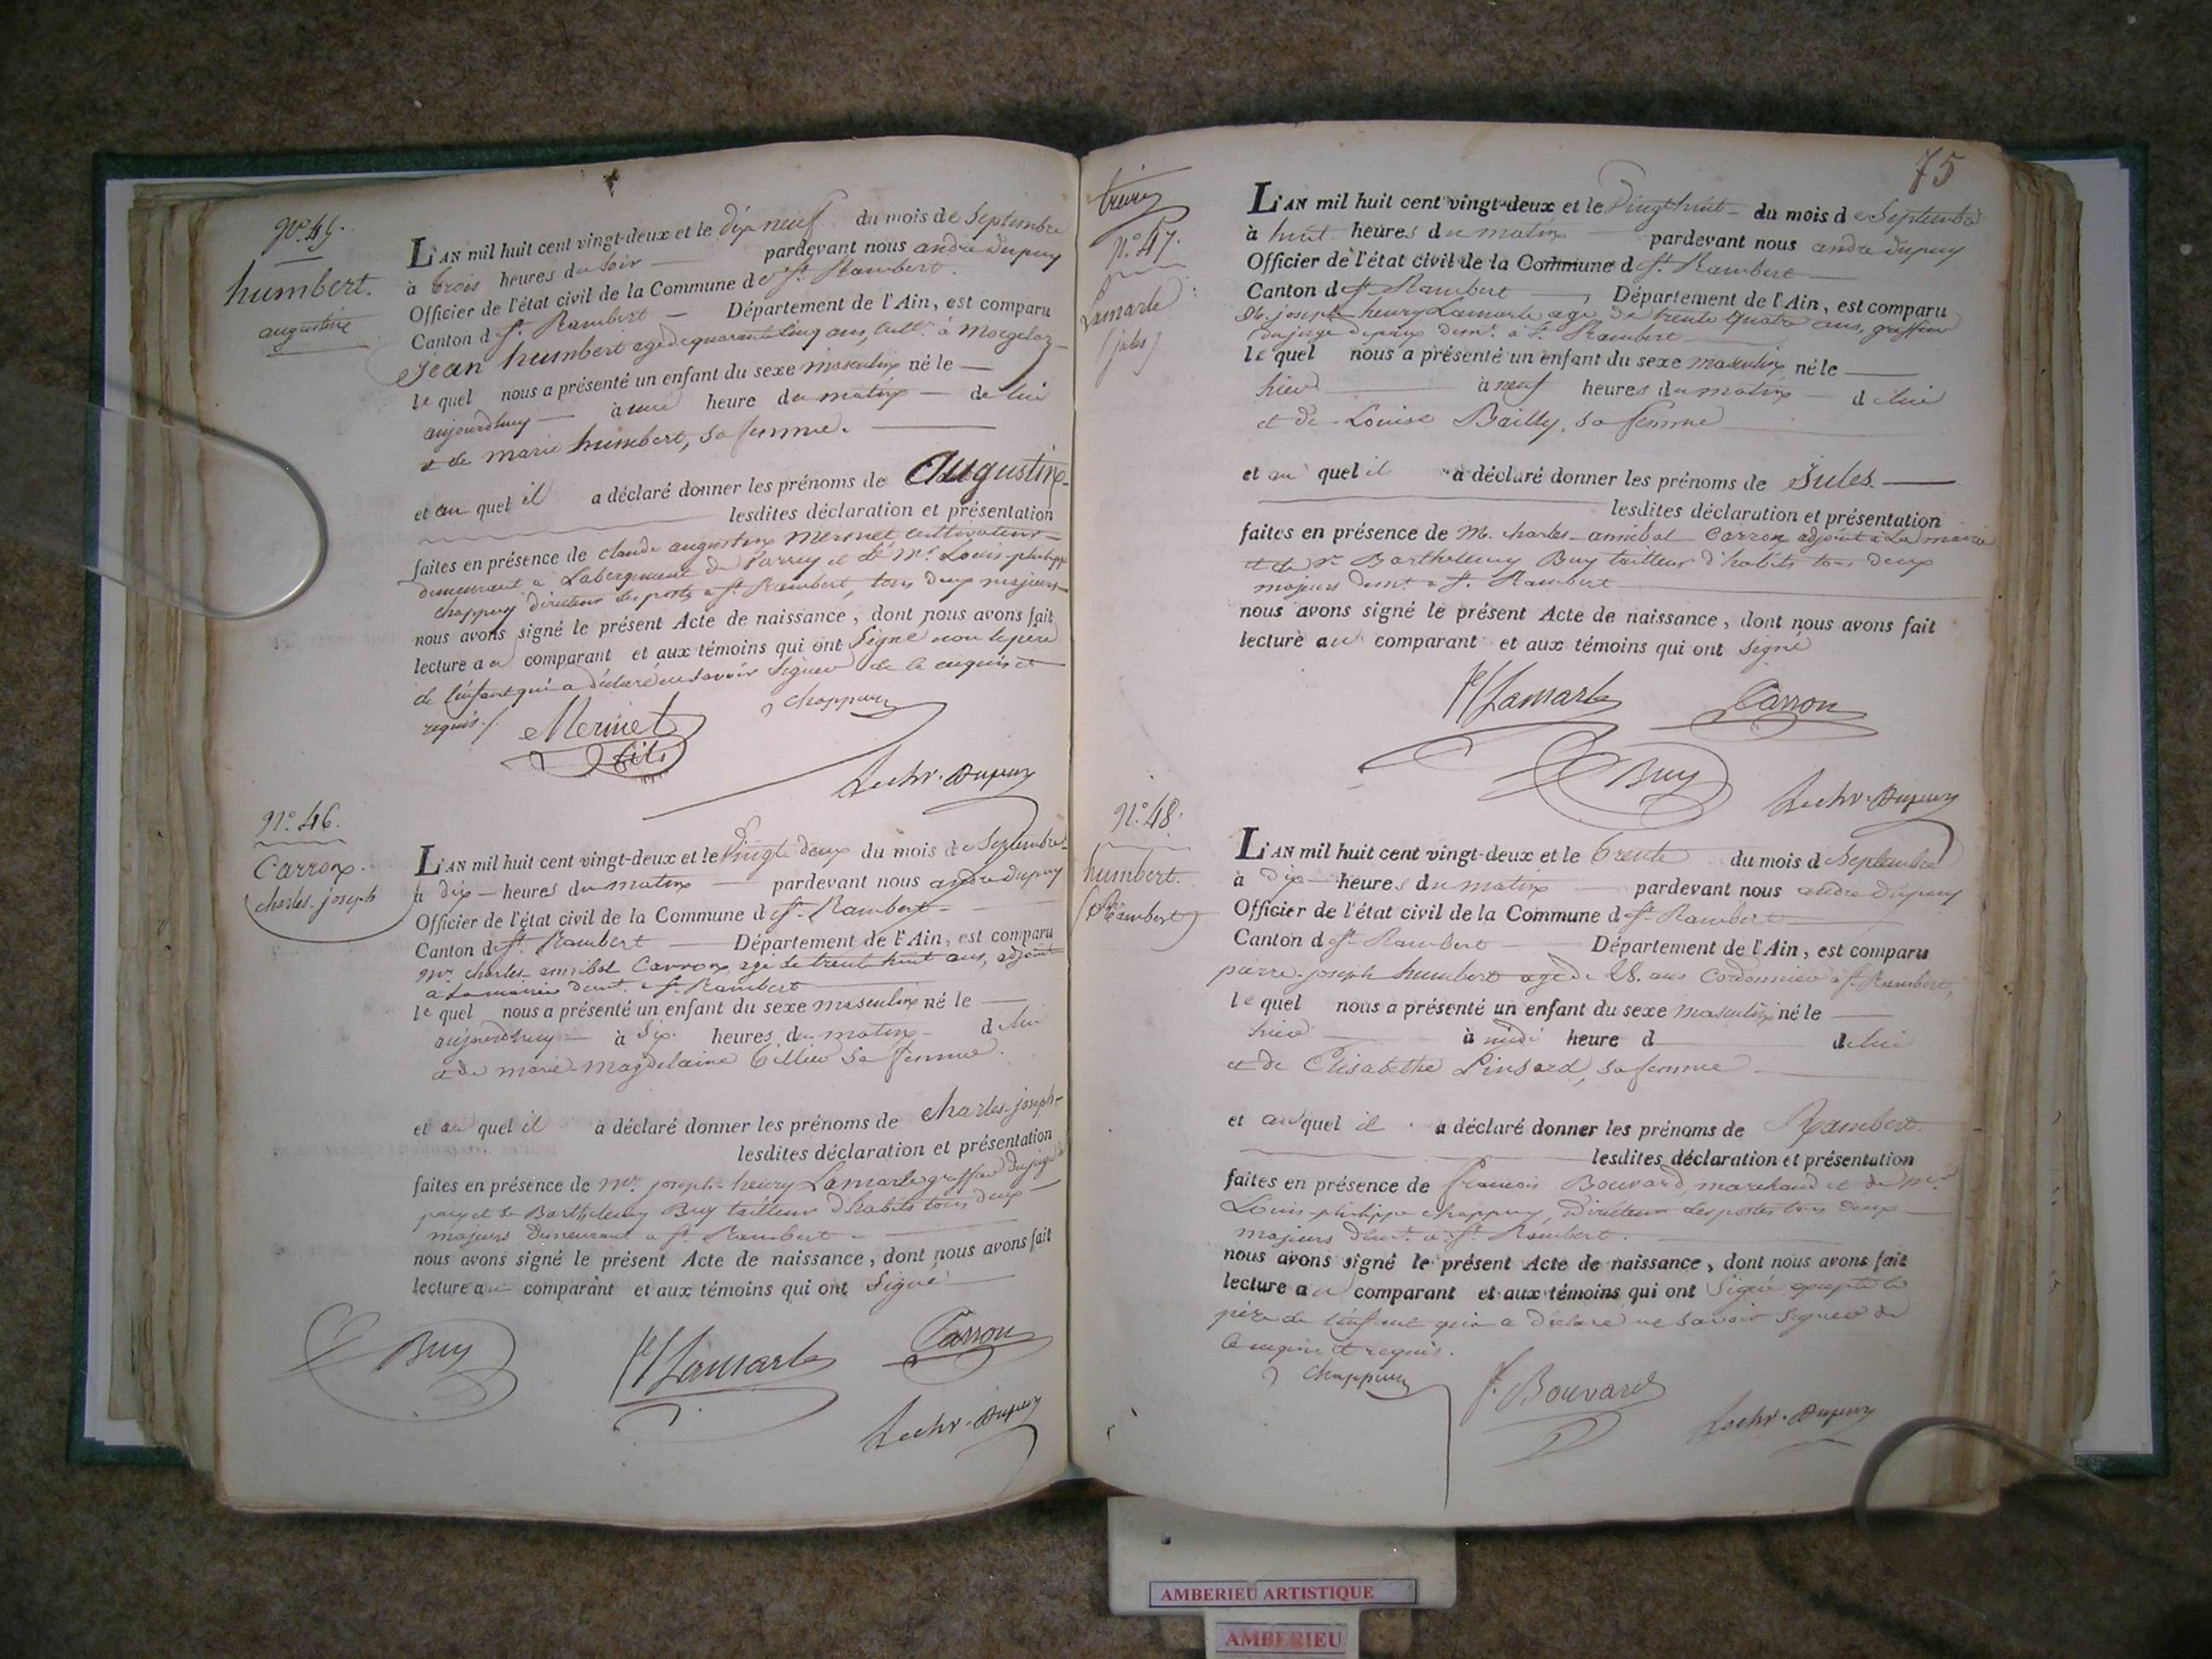 N.° 45.
humbert.
augustin
L'AN mil huit cent vingt-deux et le dix neuf du mois de Septembre
à trois heures du Soir pardevant nous andré dupuy
Officier de l'état civil de la Commune de St. Rambert.
Canton de St. Rambert Département de l'Ain, est comparu
Jean humbert agé de quarante cinq ans, cult. à Morgelaz
le quel nous a présenté un enfant du sexe masculin né le
aujourdhuy à une heure du matin de lui
et de marie humbert, sa femme.
et au quel il a déclaré donner les prénoms de Augustin
lesdites déclaration et présentation
faites en présence de claude augustin Mermet cultivateur
demeurant a Labergement de Varrey et de Mr. Louis philippe
chappuy directeur des postes a St. Rambert, tous deux majeurs
nous avons signé le présent Acte de naissance, dont nous avons fait
lecture au comparant et aux témoins qui ont Signé non le pere
de l'enfant qui a déclaré ne savoir Signer de ce enquis et
requis./.
Mermet chappuy
fils
Dupuy
N.° 46.
Carron.
charles-joseph
L'AN mil huit cent vingt-deux et le Vingt deux du mois de Septembre
à dix heures du matin pardevant nous andré dupuy
Officier de l'état civil de la Commune de St. Rambert
Canton de St. Rambert Département de l'Ain, est comparu
Mr. charles-annibal Carron, agé de trente huit ans, adjoint
a La mairie demt. a St. Rambert
le quel nous a présenté un enfant du sexe masculin né le
aujourdhuy à Six heures du matin de lui
et de marie-magdelaine sa femme.
et au quel il a déclaré donner les prénoms de charles-joseph
lesdites déclaration et présentation
faites en présence de Mr. joseph-henry Lamarle greffier du juge de
paix et Sr. Barthelemy Buy tailleur d'habits tous deux
majeurs demeurant a St. Rambert
nous avons signé le présent Acte de naissance, dont nous avons fait
lecture au comparant et aux témoins qui ont Signé
Buy Lamarle Carron
Dupuy
75
N.° 47.
Lamarle
(jules)
L'AN mil huit cent vingt-deux et le Vingt huit du mois de Septembre
à huit heures du matin pardevant nous andré dupuy
Officier de l'état civil de la Commune de St. Rambert
Canton de St. Rambert, Département de l'Ain, est comparu
M. joseph henry Lamarle agé de trente quatre ans, greffier
du juge de paix demt. a St. Rambert
le quel nous a présenté un enfant du sexe masculin né le
hier à neuf heures du matin de lui
et de Louise Bailly, sa femme
et au quel il a déclaré donner les prénoms de Jules
lesdites déclaration et présentation
faites en présence de M. charles-annibal Carron adjoint a La mairie
et de Sr. Barthelemy Buy tailleur d'habits tous deux
majeurs demt. a St. Rambert
nous avons signé le présent Acte de naissance, dont nous avons fait
lecture au comparant et aux témoins qui ont Signé
Lamarle Carron
Buy Dupuy
N.° 48.
humbert.
(Rambert)
L'AN mil huit cent vingt-deux et le trente du mois de Septembre
à dix heures du matin pardevant nous andré dupuy
Officier de l'état civil de la Commune de St. Rambert
Canton de St. Rambert Département de l'Ain, est comparu
pierre-joseph humbert agé de 28. ans Cordonnier a St. Rambert,
le quel nous a présenté un enfant du sexe masculin né le
hier à midi heure d de lui
et de Elisabethe Pinsard, sa femme
et au quel il a déclaré donner les prénoms de Rambert.
lesdites déclaration et présentation
faites en présence de francois Bouvard, marchand et de Mr.
Louis-philippe chappuy, Directeur des postes tous deux
majeurs demt. a St. Rambert.
nous avons signé le présent Acte de naissance, dont nous avons fait
lecture au comparant et aux témoins qui ont Signé excepté le
père de l'enfant qui a déclaré ne savoir Signer de
ce enquis et requis.
chappuy f. Bouvard Dupuy
AMBERIEU ARTISTIQUE
AMBERIEU